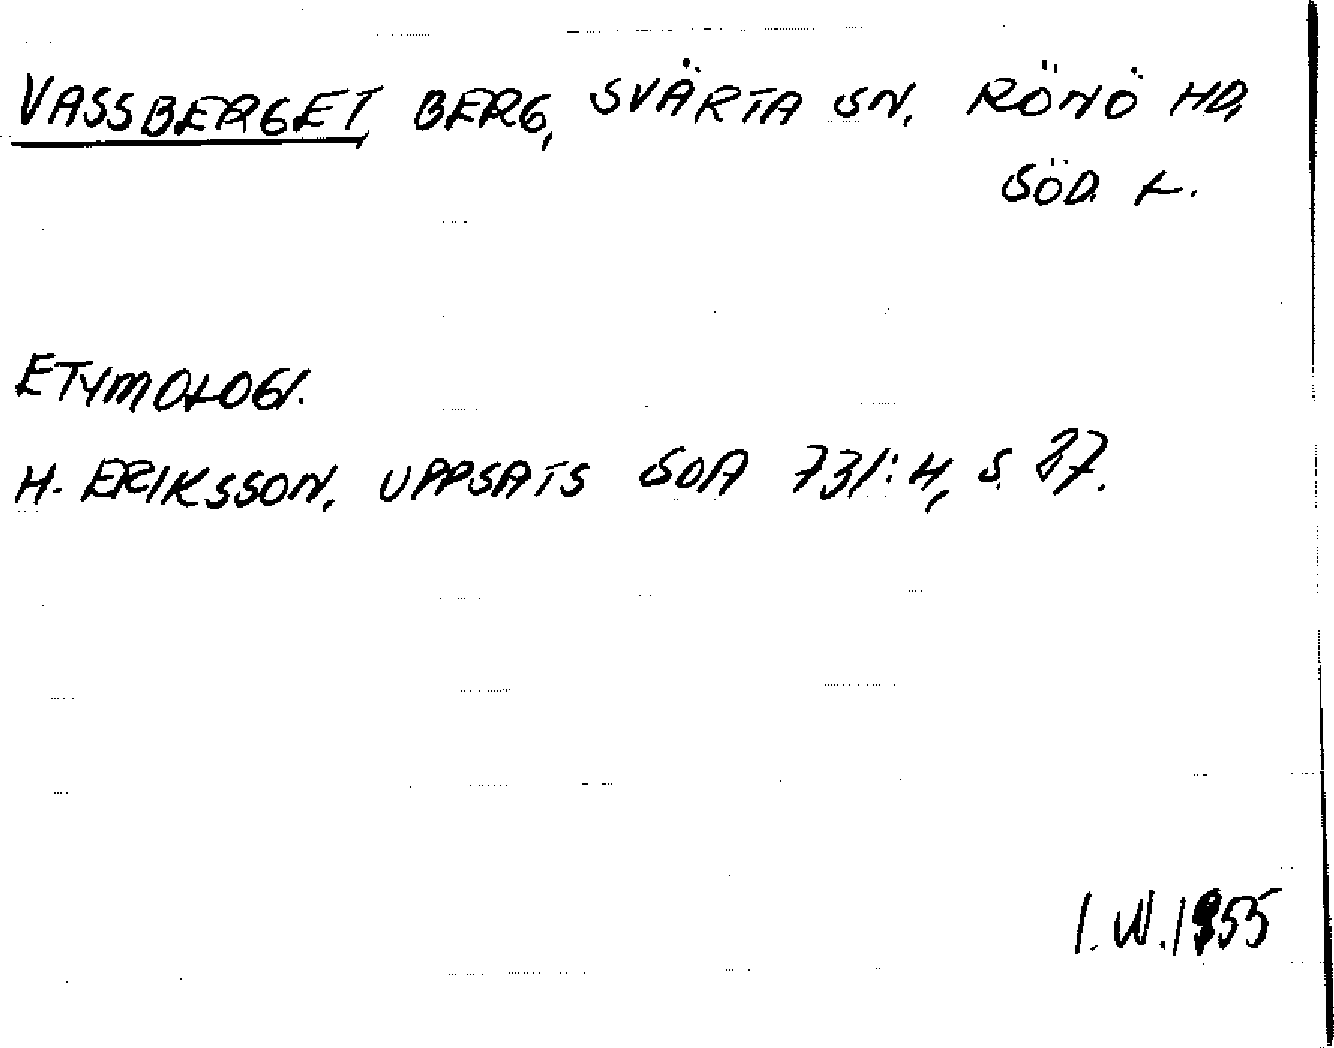 VASSBERGET, BERG, SVÄRTA SN, RÖNÖ HD,
SÖD. L.
ETYMOLOGI.
H. ERIKSSON, UPPSATS SOA 731:4, S. 37.
I.W.1955